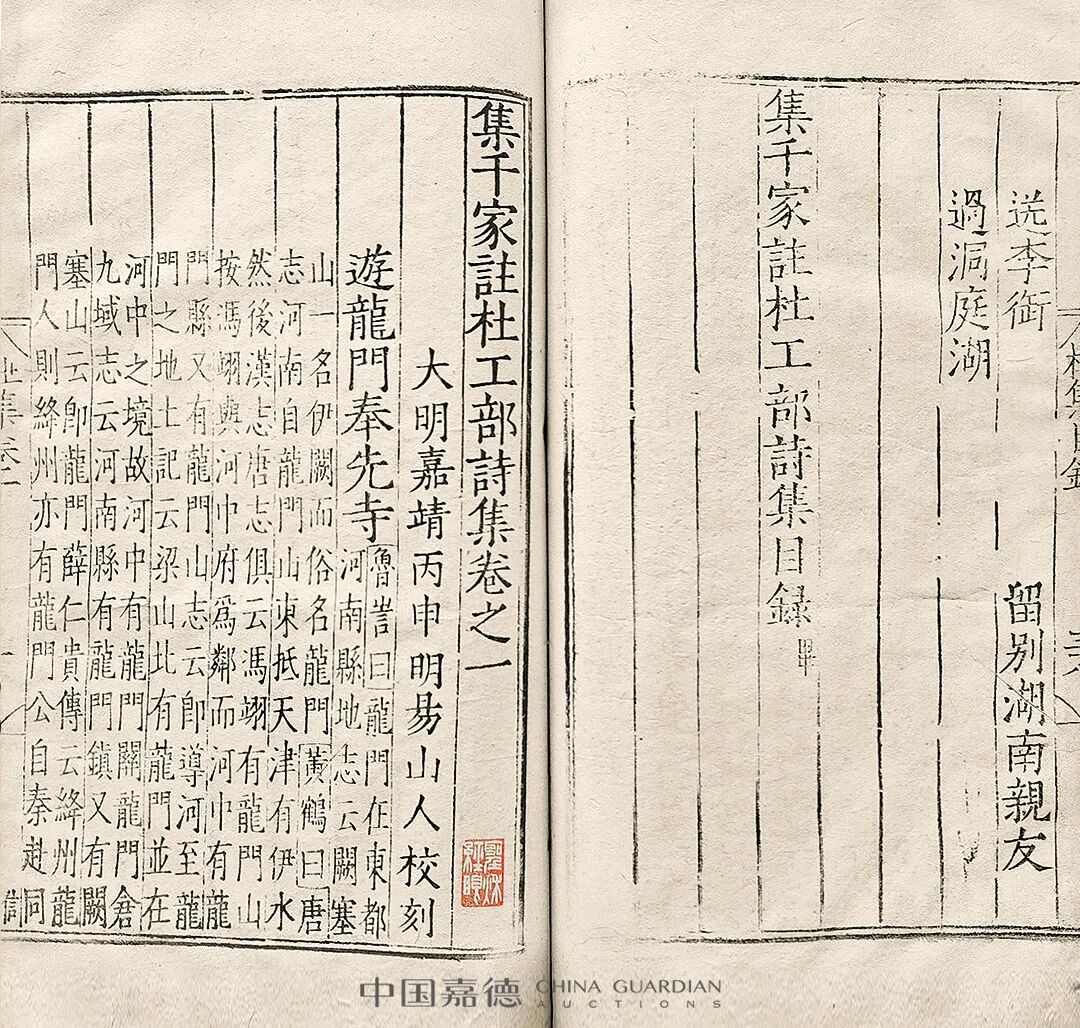 送李銜　留別湖南親友
過洞庭湖
集千家註杜工部詩集目錄畢
集千家註杜工部詩集卷之一
大明嘉靖丙申明昜山人校刻
遊龍門奉先寺
魯訔曰龍門在東都
河南縣地志云闕塞
山一名伊闕而俗名龍門黃鶴曰唐
志河南自龍門山東抵天津有伊水
然後漢志唐志俱云馮翊有龍門山
按馮翊與河中府爲鄰而河中有龍
門縣又有龍門山志云卽導河至龍
門之地土記云梁山北有龍門並在
河中之境故河中有龍門關龍門倉
九域志云河南縣有龍門鎮又有闕
塞山云卽龍門薛仁貴傳云絳州龍
門人則絳州亦有龍門公自秦赴同
中国嘉德 CHINA GUARDIAN
AUCTIONS